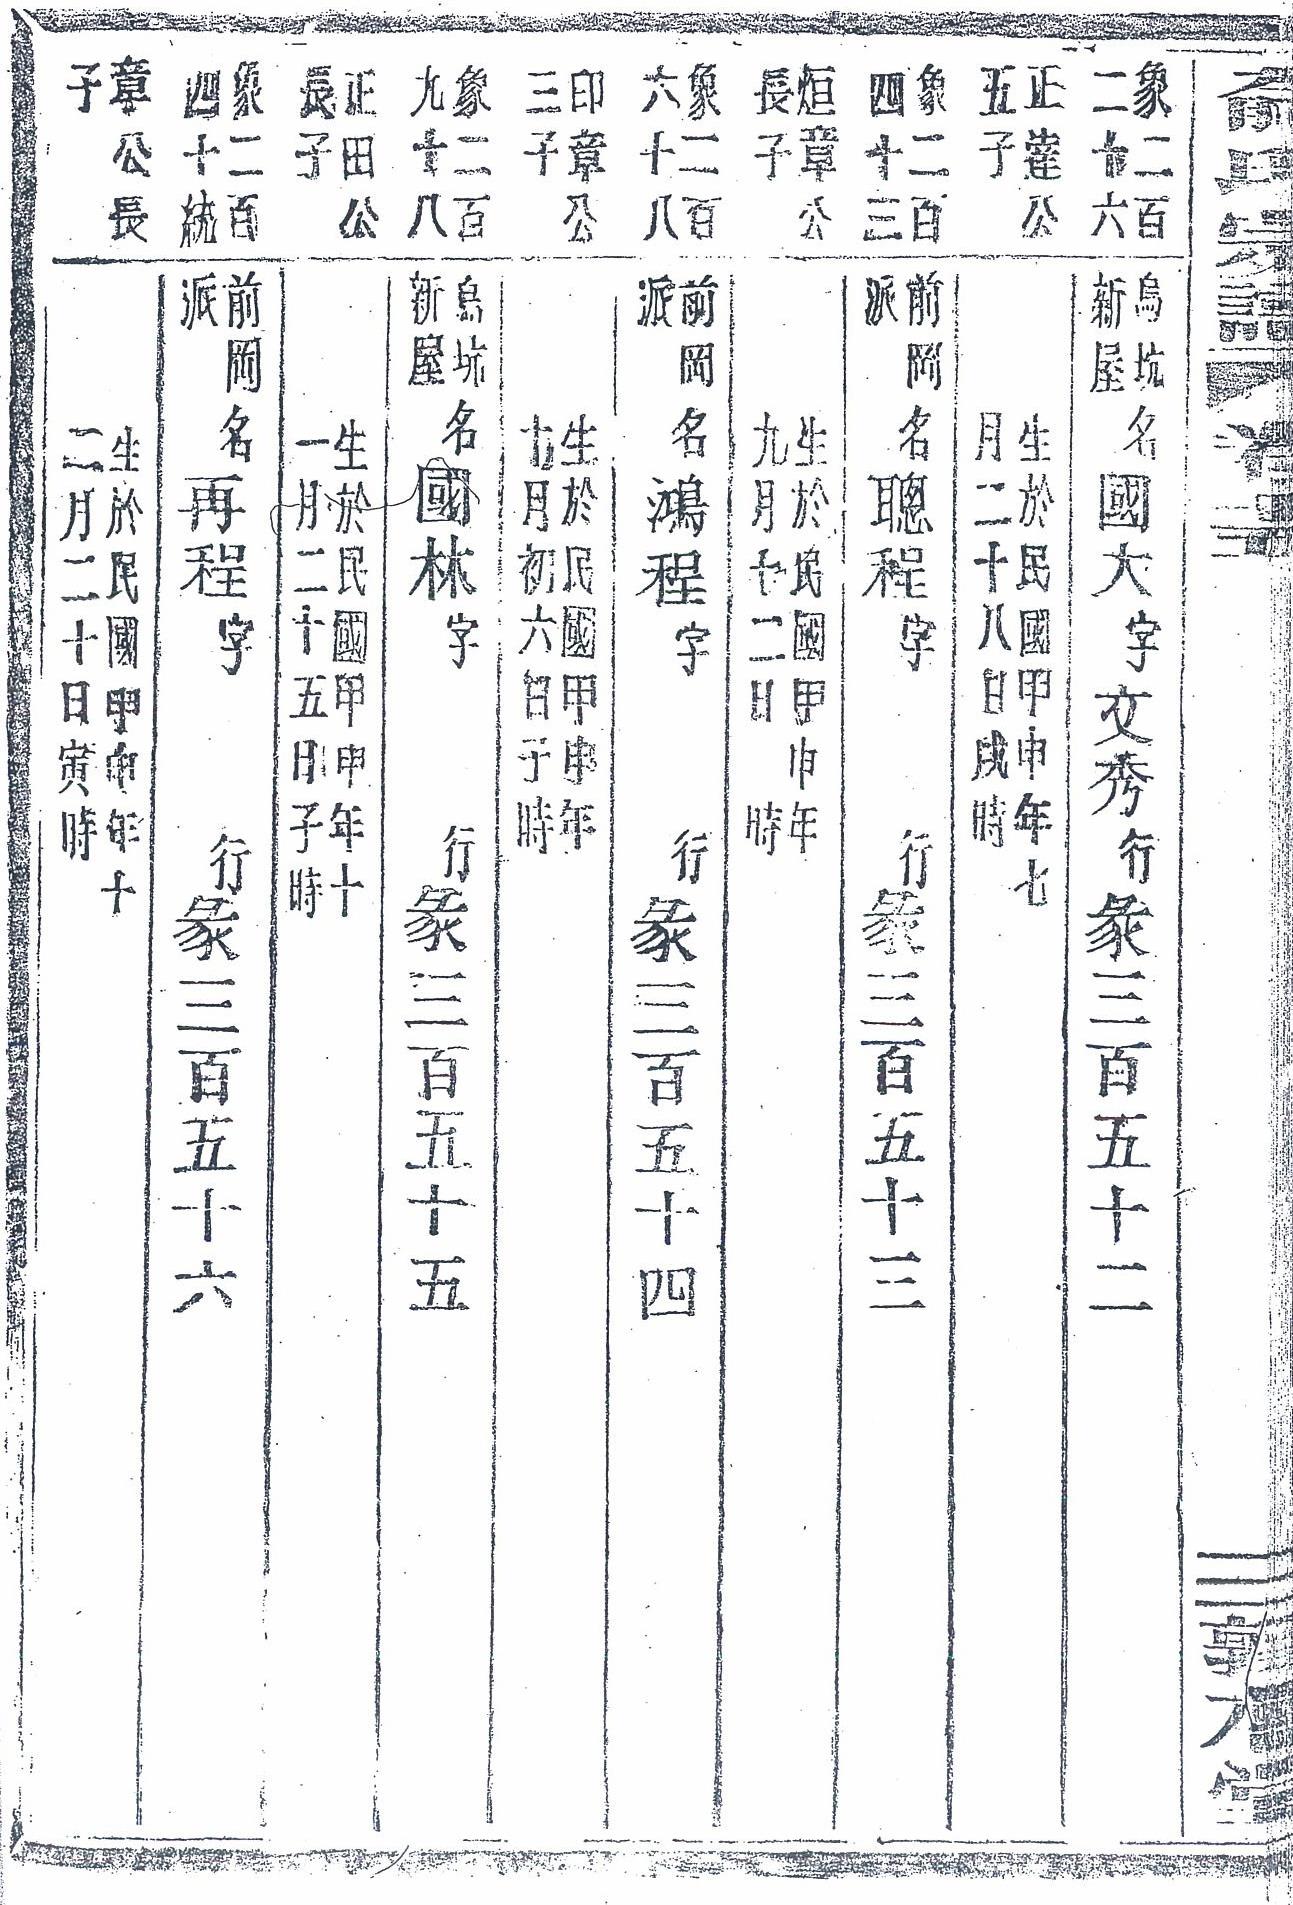 象二百
二十六
正達公
五子
烏坑
新屋
名國大字文秀行彖三百五十二
生於民國甲申年七
月二十八日戌時
象二百
四十三
烜章公
長子
前岡
派
名聰程字行彖三百五十三
生於民國甲申年
九月十二日時
象二百
六十八
印章公
三子
前岡
派
名鴻程字行彖三百五十四
生於民國甲申年
七月初六日子時
象二百
九十八
正田公
長子
烏坑
新屋
名國林字行彖三百五十五
生於民國甲申年十
一月二十五日子時
象二百
四十統
章公長
子
前岡
派
名再程字行彖三百五十六
生於民國甲申年十
二月二十日寅時